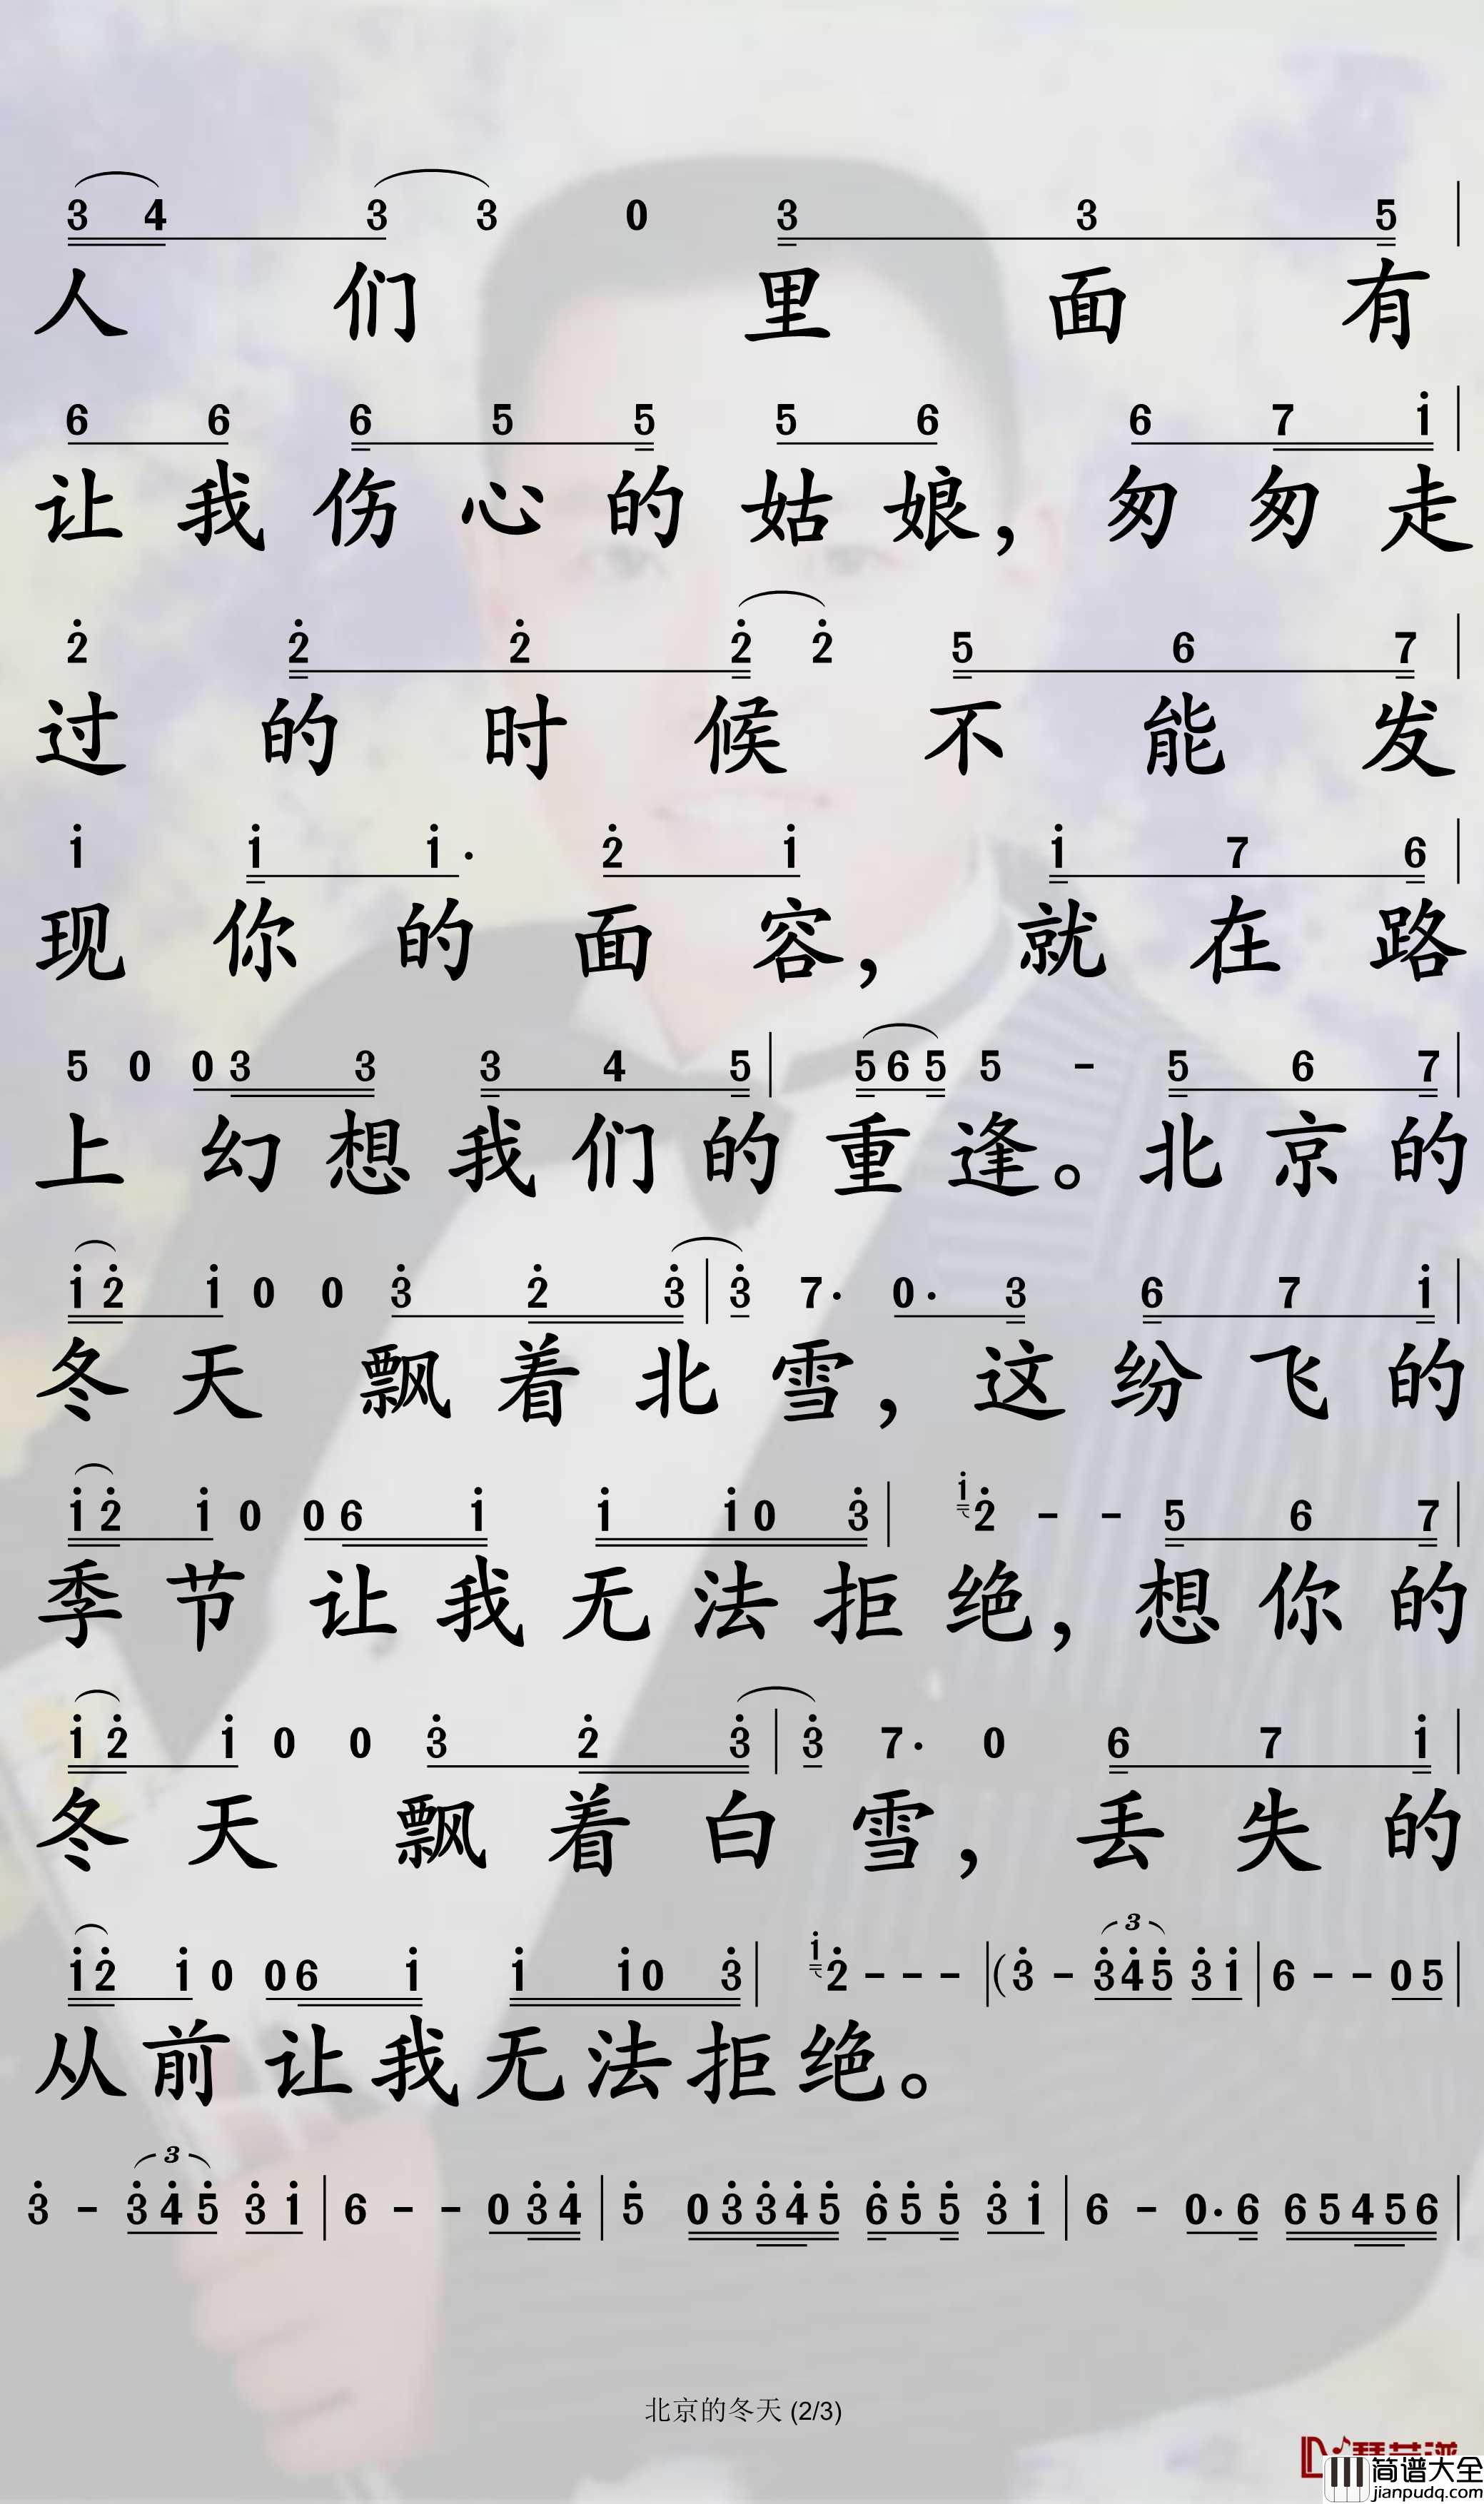 3 4 3 3 0 3 3 5
人们里面有
6 6 6 5 5 5 6 6 7 i
让我伤心的姑娘，匆匆走
2 2 2 2 2 5 6 7
过的时候不能发
i i i· 2 i i 7 6
现你的面容，就在路
5 0 0 3 3 3 4 5 | 5 6 5 5 - 5 6 7
上幻想我们的重逢。北京的
i 2 i 0 0 3 2 3 | 3 7· 0· 3 6 7 i
冬天飘着北雪，这纷飞的
i 2 i 0 0 6 i i i 0 3 | i 2 - - 5 6 7
季节让我无法拒绝，想你的
i 2 i 0 0 3 2 3 | 3 7· 0 6 7 i
冬天飘着白雪，丢失的
i 2 i 0 0 6 i i i 0 3 | i 2 - - - | (3 - 3 4 5 3 i | 6 - - 0 5
从前让我无法拒绝。
3 - 3 4 5 3 i | 6 - - 0 3 4 | 5 0 3 3 4 5 6 5 5 3 i | 6 - 0· 6 6 5 4 5 6
北京的冬天 (2/3)
简谱大全
jianpudq.com